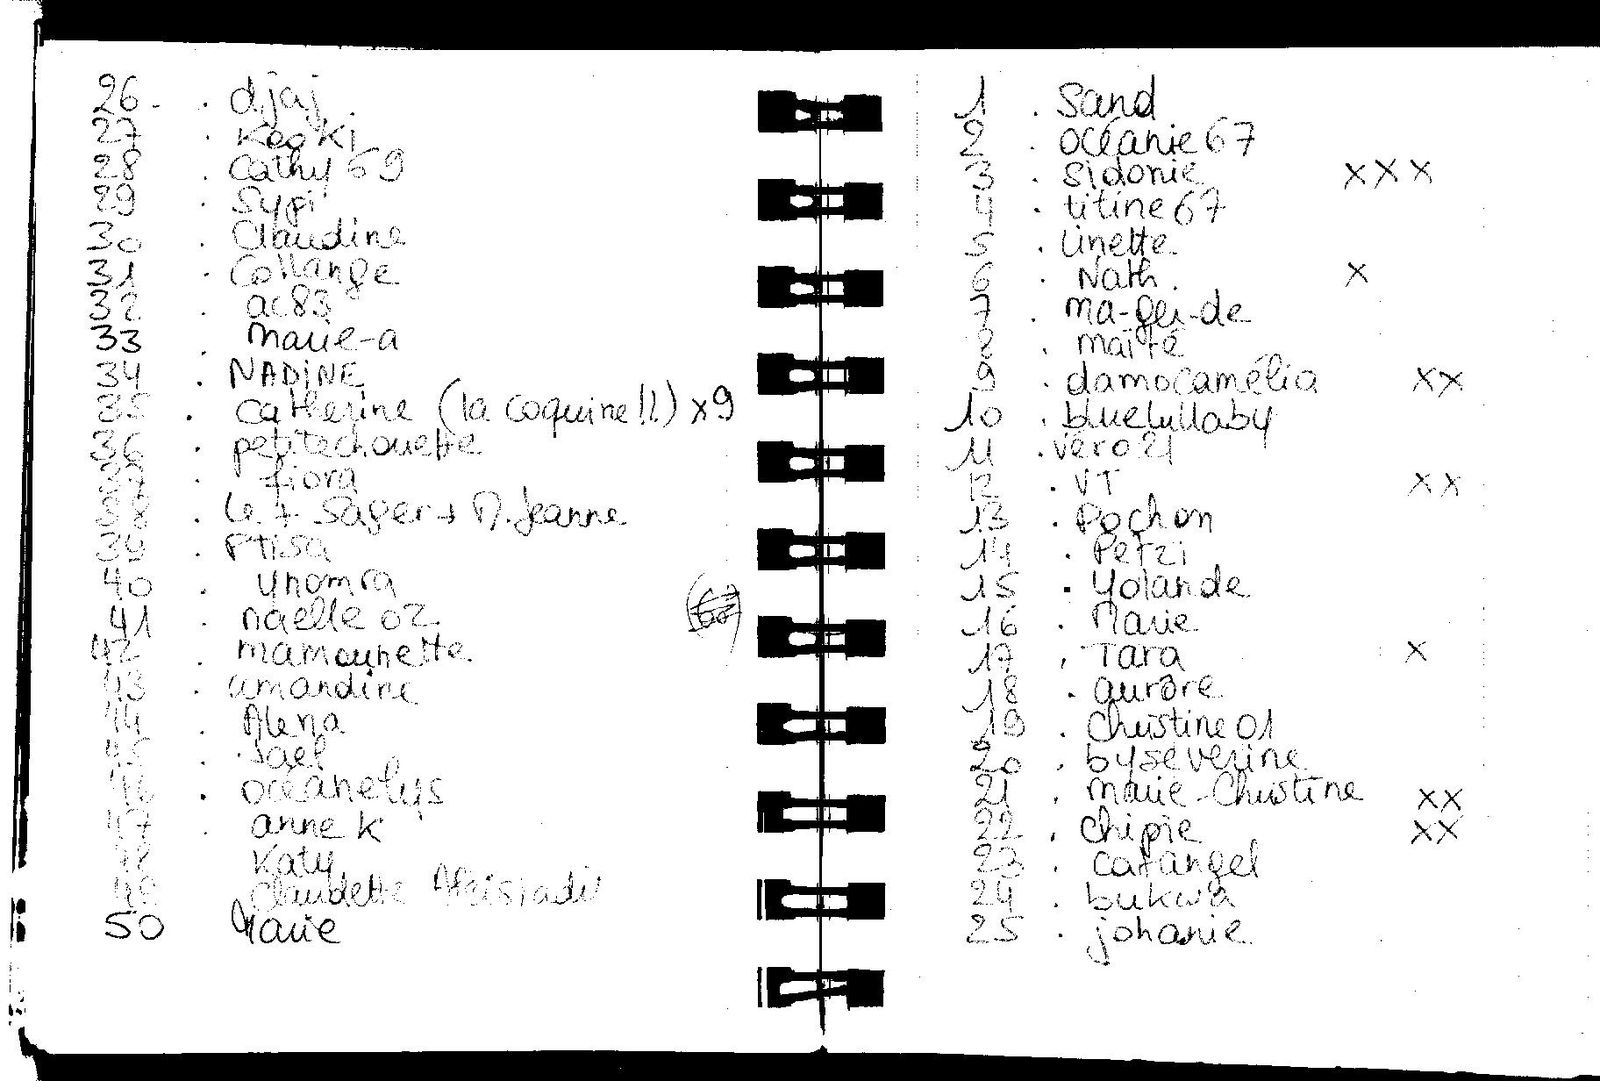 26 - . djaj
27 . KeoKi
28 . cathy 69
29 . Sypi
30 . Claudine
31 . Collange
32 . ac83
33 . marie-a
34 . NADINE
35 . catherine (la coquine !!) x9
36 . petitechouette
37 . fiora
38 . + Sager + M. Jeanne
39 . Ptisa
40 . ynomra
41 . naelle 02
42 . mamounette
43 . amandine
44 . Alena
45 . Jael
46 . océanelys
47 . anne K
48 Katy
49 Claudette
50 Marie
1 . Sand
2 . océanie 67
3 . sidonie XXX
4 . titine 67
5 . linette
6 . Nath. X
7 . ma-gui-de
8 . maïté
9 . damocamélia XX
10 . bluelullaby
11 . vero 21
12 . VT XX
13 . Pochon
14 . Petzi
15 . Yolande
16 . Marie
17 . Tara X
18 . aurore
19 . Christine 01
20 . byseverine
21 . marie-Christine XX
22 . chipie XX
23 . catangel
24 . bukwa
25 . johanie